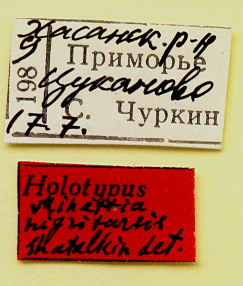 Хасанск. р-н
9 Приморье
198
Цуканово
С. Чуркин
17.7.
Holotypus
Minettia
nigritarsis
Shatalkin det.